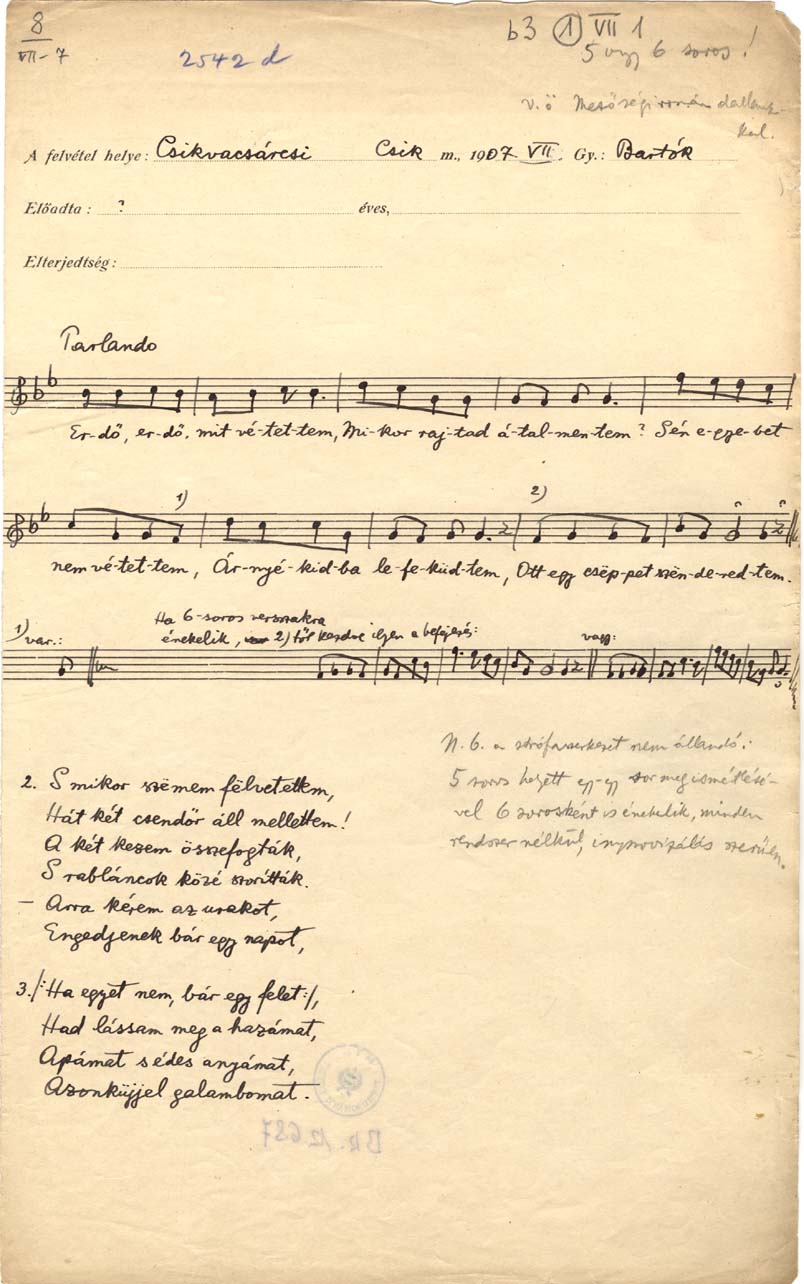 8
VII-7
2542 d
b3 1 VII 1
5 vagy 6 soros!
v.ö. Mezőségi román dallamok-
kal.
A felvétel helye: Csikvacsárcsi Csik m., 1907. VII. Gy.: Bartók
Előadta: ? éves,
Elterjedtség:
Parlando
Er-dő, er-dő, mit vé-tet-tem, Mi-kor raj-tad á-tal-men-tem? Sén e-gye-bet
1) 2)
nem vé-tet-tem, Ár-nyé-kid-ba le-fe-küd-tem, Ott egy csëp-pet szën-de-red-tem.
1) var.:
Ha 6-soros versszakra
énekelik, 2) től kezdve ilyen a befejezés: vagy:
N.B. a strófaszerkezet nem állandó:
5 soros helyett egy-egy sor megismétlésé-
vel 6 sorosként is énekelik, minden
rendszer nélkül, improvizálás szerűen.
2. S mikor szëmem fëlvetëttem,
Hát két csendőr áll mellettem!
A két kezem összefogták,
S rabláncok közé szorították.
– Arra kérem az urakot,
Engedjenek bár egy napot,
3. /: Ha egyet nem, bár egy felet :/,
Had lássam meg a hazámat,
Apámat s édes anyámat,
Azonküjjel galambomat.